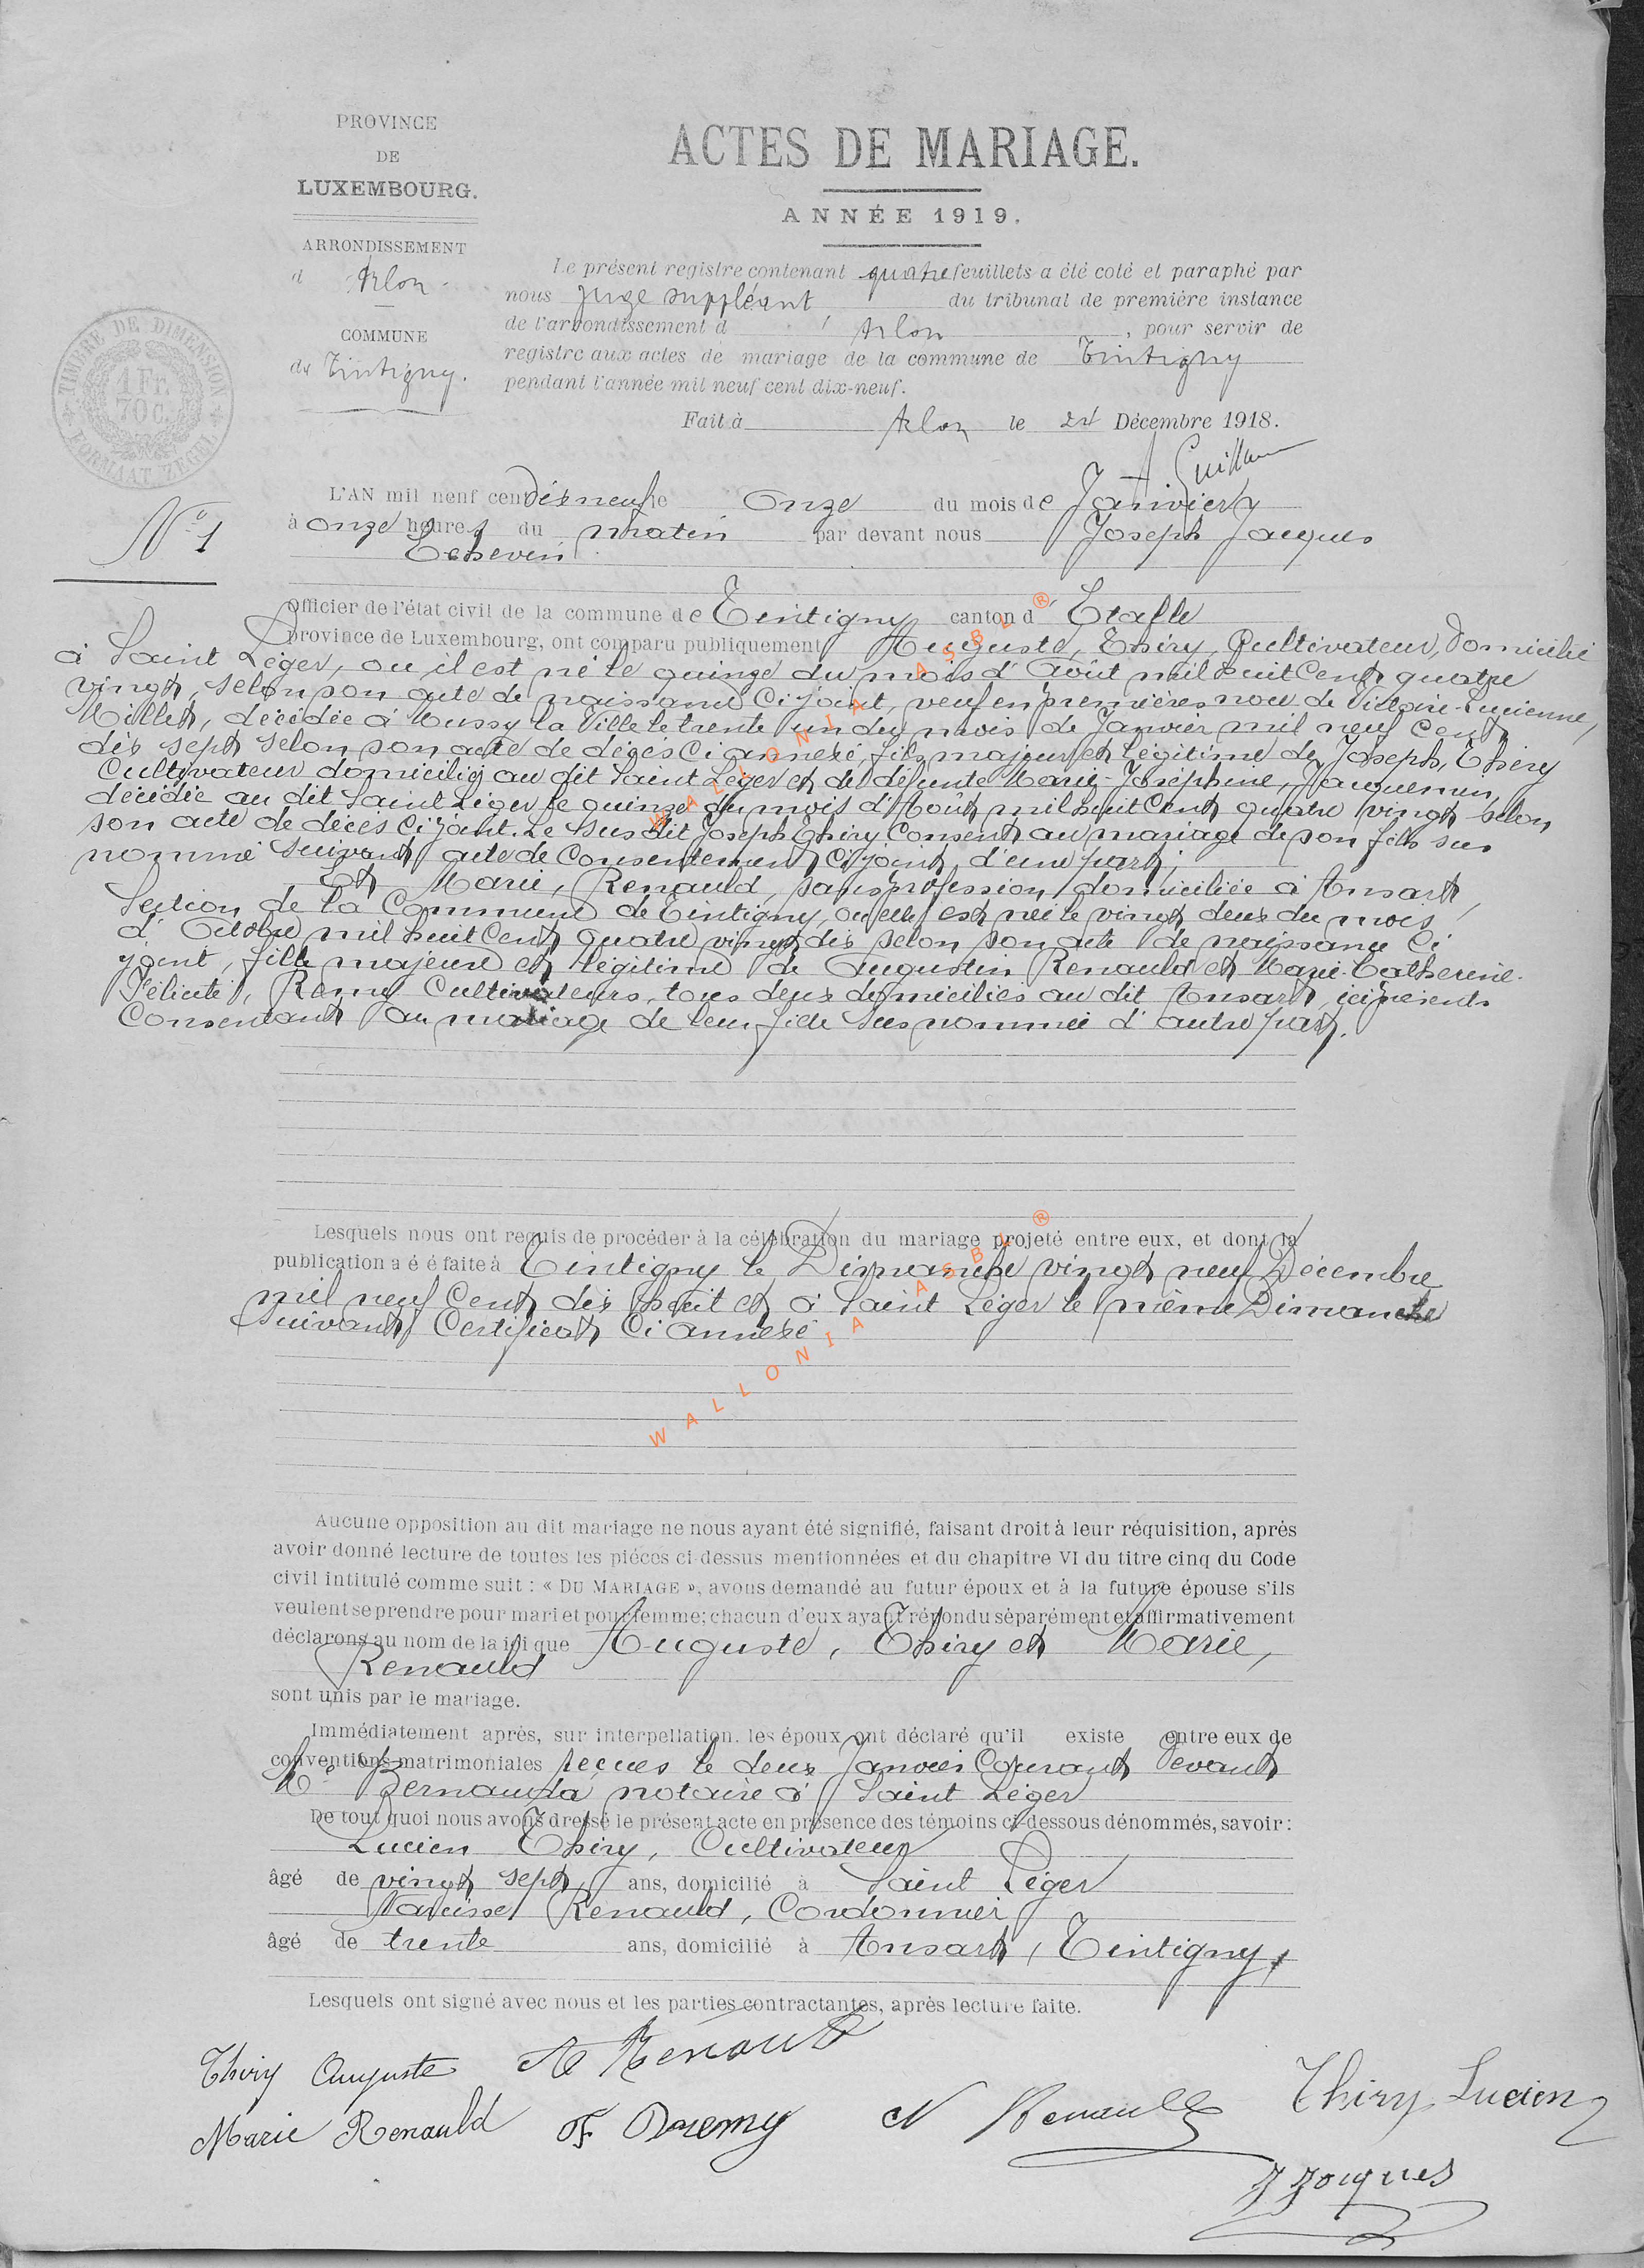 PROVINCE
DE
LUXEMBOURG.
ARRONDISSEMENT
d' Arlon
COMMUNE
de Tintigny.
TIMBRE DE DIMENSION
1 Fr.
70 C.
FORMAAT ZEGEL
ACTES DE MARIAGE.
ANNÉE 1919.
Le présent registre contenant quatre feuillets a été coté et paraphé par
nous Juge suppléant du tribunal de première instance
de l'arrondissement d' Arlon, pour servir de
registre aux actes de mariage de la commune de Tintigny
pendant l'année mil neuf cent dix-neuf.
Fait à Arlon le 24 Décembre 1918.
N° 1
L'AN mil neuf cent dix neuf le Onze du mois de Janvier
à onze heures du matin par devant nous Joseph Jacques
Echevin
Officier de l'état civil de la commune de Tintigny canton d'Etalle
province de Luxembourg, ont comparu publiquement Auguste, Thiry, Cultivateur, domicilié
à Saint Léger, ou il est né le quinze du mois d'Août mil huit Cent quatre
vingt, selon son acte de naissance ci joint, veuf en premières noce de Victoire-Lucienne,
Millet, décédée à Mussy la Ville le trente un du mois de Janvier mil neuf Cent
dix sept selon son acte de décès ci annexé, fils majeur et légitime de Joseph, Thiry
Cultivateur domicilié au dit Saint Léger et de défunte Marie-Joséphine, Jacquemin,
décédée au dit Saint Léger le quinze du mois d'Août mil huit Cent quatre vingt selon
son acte de décès ci joint. Le susdit Joseph Thiry Consent au mariage de son fils sus
nommé suivant acte de Consentement ci joint, d'une part;
Et Marie, Renauld, sans profession, domiciliée à Ansart,
Section de la Commune de Tintigny, ou elle est née le vingt deux du mois
d'Octobre mil huit Cent quatre vingt dix selon son acte de naissance Ci
joint, fille majeure et légitime de Augustin Renauld et Marie-Catherine-
Félicité, Remy Cultivateurs, tous deux domiciliés au dit Ansart, ici présents
Consentant au mariage de leur fille Sus nommée d'autre part.
Lesquels nous ont requis de procéder à la célébration du mariage projeté entre eux, et dont la
publication a é é faite à Tintigny le Dimanche vingt neuf Décembre
mil neuf Cent dix huit et à Saint Léger le même Dimanche
Suivant Certificat Ci annexé
Aucune opposition au dit mariage ne nous ayant été signifié, faisant droit à leur réquisition, après
avoir donné lecture de toutes les pièces ci-dessus mentionnées et du chapitre VI du titre cinq du Code
civil intitulé comme suit : « DU MARIAGE », avons demandé au futur époux et à la future épouse s'ils
veulent se prendre pour mari et pour femme; chacun d'eux ayant répondu séparément et affirmativement
déclarons au nom de la loi que Auguste, Thiry et Marie,
Renauld
sont unis par le mariage.
Immédiatement après, sur interpellation, les époux ont déclaré qu'il existe entre eux de
conventions matrimoniales reçues le deux Janvier Courant Devant
Me notaire à Saint Léger
De tout quoi nous avons dressé le présent acte en présence des témoins ci-dessous dénommés, savoir :
Lucien Thiry, Cultivateur
âgé de vingt sept ans, domicilié à Saint Léger
Narcisse Renauld, Cordonnier
âgé de trente ans, domicilié à Ansart, Tintigny,
Lesquels ont signé avec nous et les parties contractantes, après lecture faite.
Thiry Auguste A Renauld
Marie Renauld F. Remy N Renauld Thiry Lucien
J Jacques
WALLONIA ASBL ®
WALLONIA ASBL ®